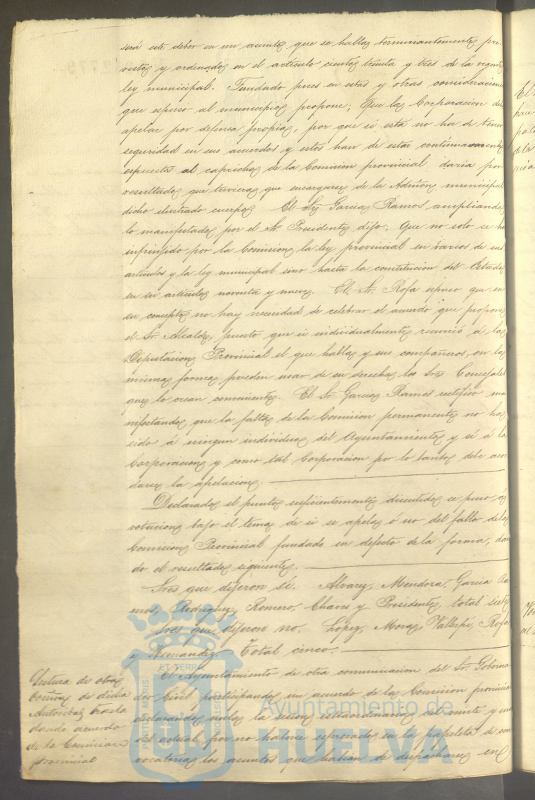 será este deber en un asunto que se halla terminantemente pre
visto y ordenado en el artículo ciento treinta y tres de la vigente
ley municipal. Fundado pues en estas y otras consideraciones
que expuso al municipio propone: Que la Corporacion debe
apelar por defensa propia, por que si esta no ha de tener
seguridad en sus acuerdos y estos han de estar continuamente
espuestos al capricho de la Comision provincial, daria por
resultado que tuviera que encargarse de la Admon municipal
dicho ilustrado cuerpo. El Sr Garcia Ramos ampliando
lo manifestado por el Sr Presidente, dijo: Que no solo se ha
infringido por la Comision la ley provincial en varios de sus
articulos y la ley municipal sino hasta la constitucion del Estado
en su articulo noventa y nueve. El Sr. Rofa espuso que en
su concepto no hay necesidad de celebrar el acuerdo que propone
el Sr Alcalde, puesto que si individualmente recurrió á la
Diputacion Provincial el que habla y sus compañeros, en la
misma forma pueden usar de su derecho los Sres Concejales
que lo crean conveniente. El Sr Garcia Ramos rectificó ma
nifestando que la falta de la Comision permanente no ha
sido á ningun individuo del Ayuntamiento y si á la
Corporacion y como tal Corporacion por lo tanto debe acor
darse la apelacion.
Declarado el punto suficientemente discutido se puso á
votacion bajo el tema de si se apela ó no del fallo de la
Comision Provincial fundado en defecto de la forma, dan
do el resultado siguiente.
Sres que dijeron sí. Alvarez, Mendoza, Garcia Ra
mos, Rodriguez, Romero, Chaves y Presidente, total siete
Sres que dijeron no. Lopez, Mora, Vallejo, Rofa
y Hernandez. Total cinco.
Lectura de otra
comon de dicha
Autoridad trasla
dando acuerdo
de la Comision
provincial
El Ayuntamiento de otra comunicacion del Sr. Goberna
dor Civil participando un acuerdo de la Comision provincial
declarando nula la sesion estraordinaria del veinte y uno
del actual por no haberse espresado en la papeleta de con
vocatoria los asuntos que habian de despacharse en
Ayuntamiento de
HUELVA